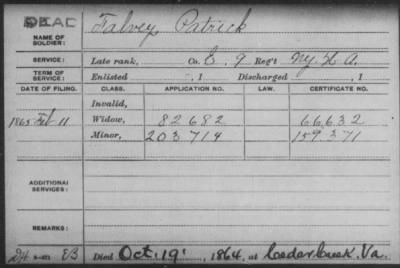 DEAD
Falvey, Patrick
NAME OF
SOLDIER:
SERVICE: Late rank, Co. C. 9 Reg't N.Y. H. A.
TERM OF
SERVICE: Enlisted , 1 Discharged , 1
DATE OF FILING. CLASS. APPLICATION NO. LAW. CERTIFICATE NO.
Invalid,
1865 Feb 11 Widow, 82682 66,632
Minor, 203714 159371
ADDITIONAL
SERVICES:
REMARKS:
Died Oct. 19, 1864, at Cedar Creek, Va.